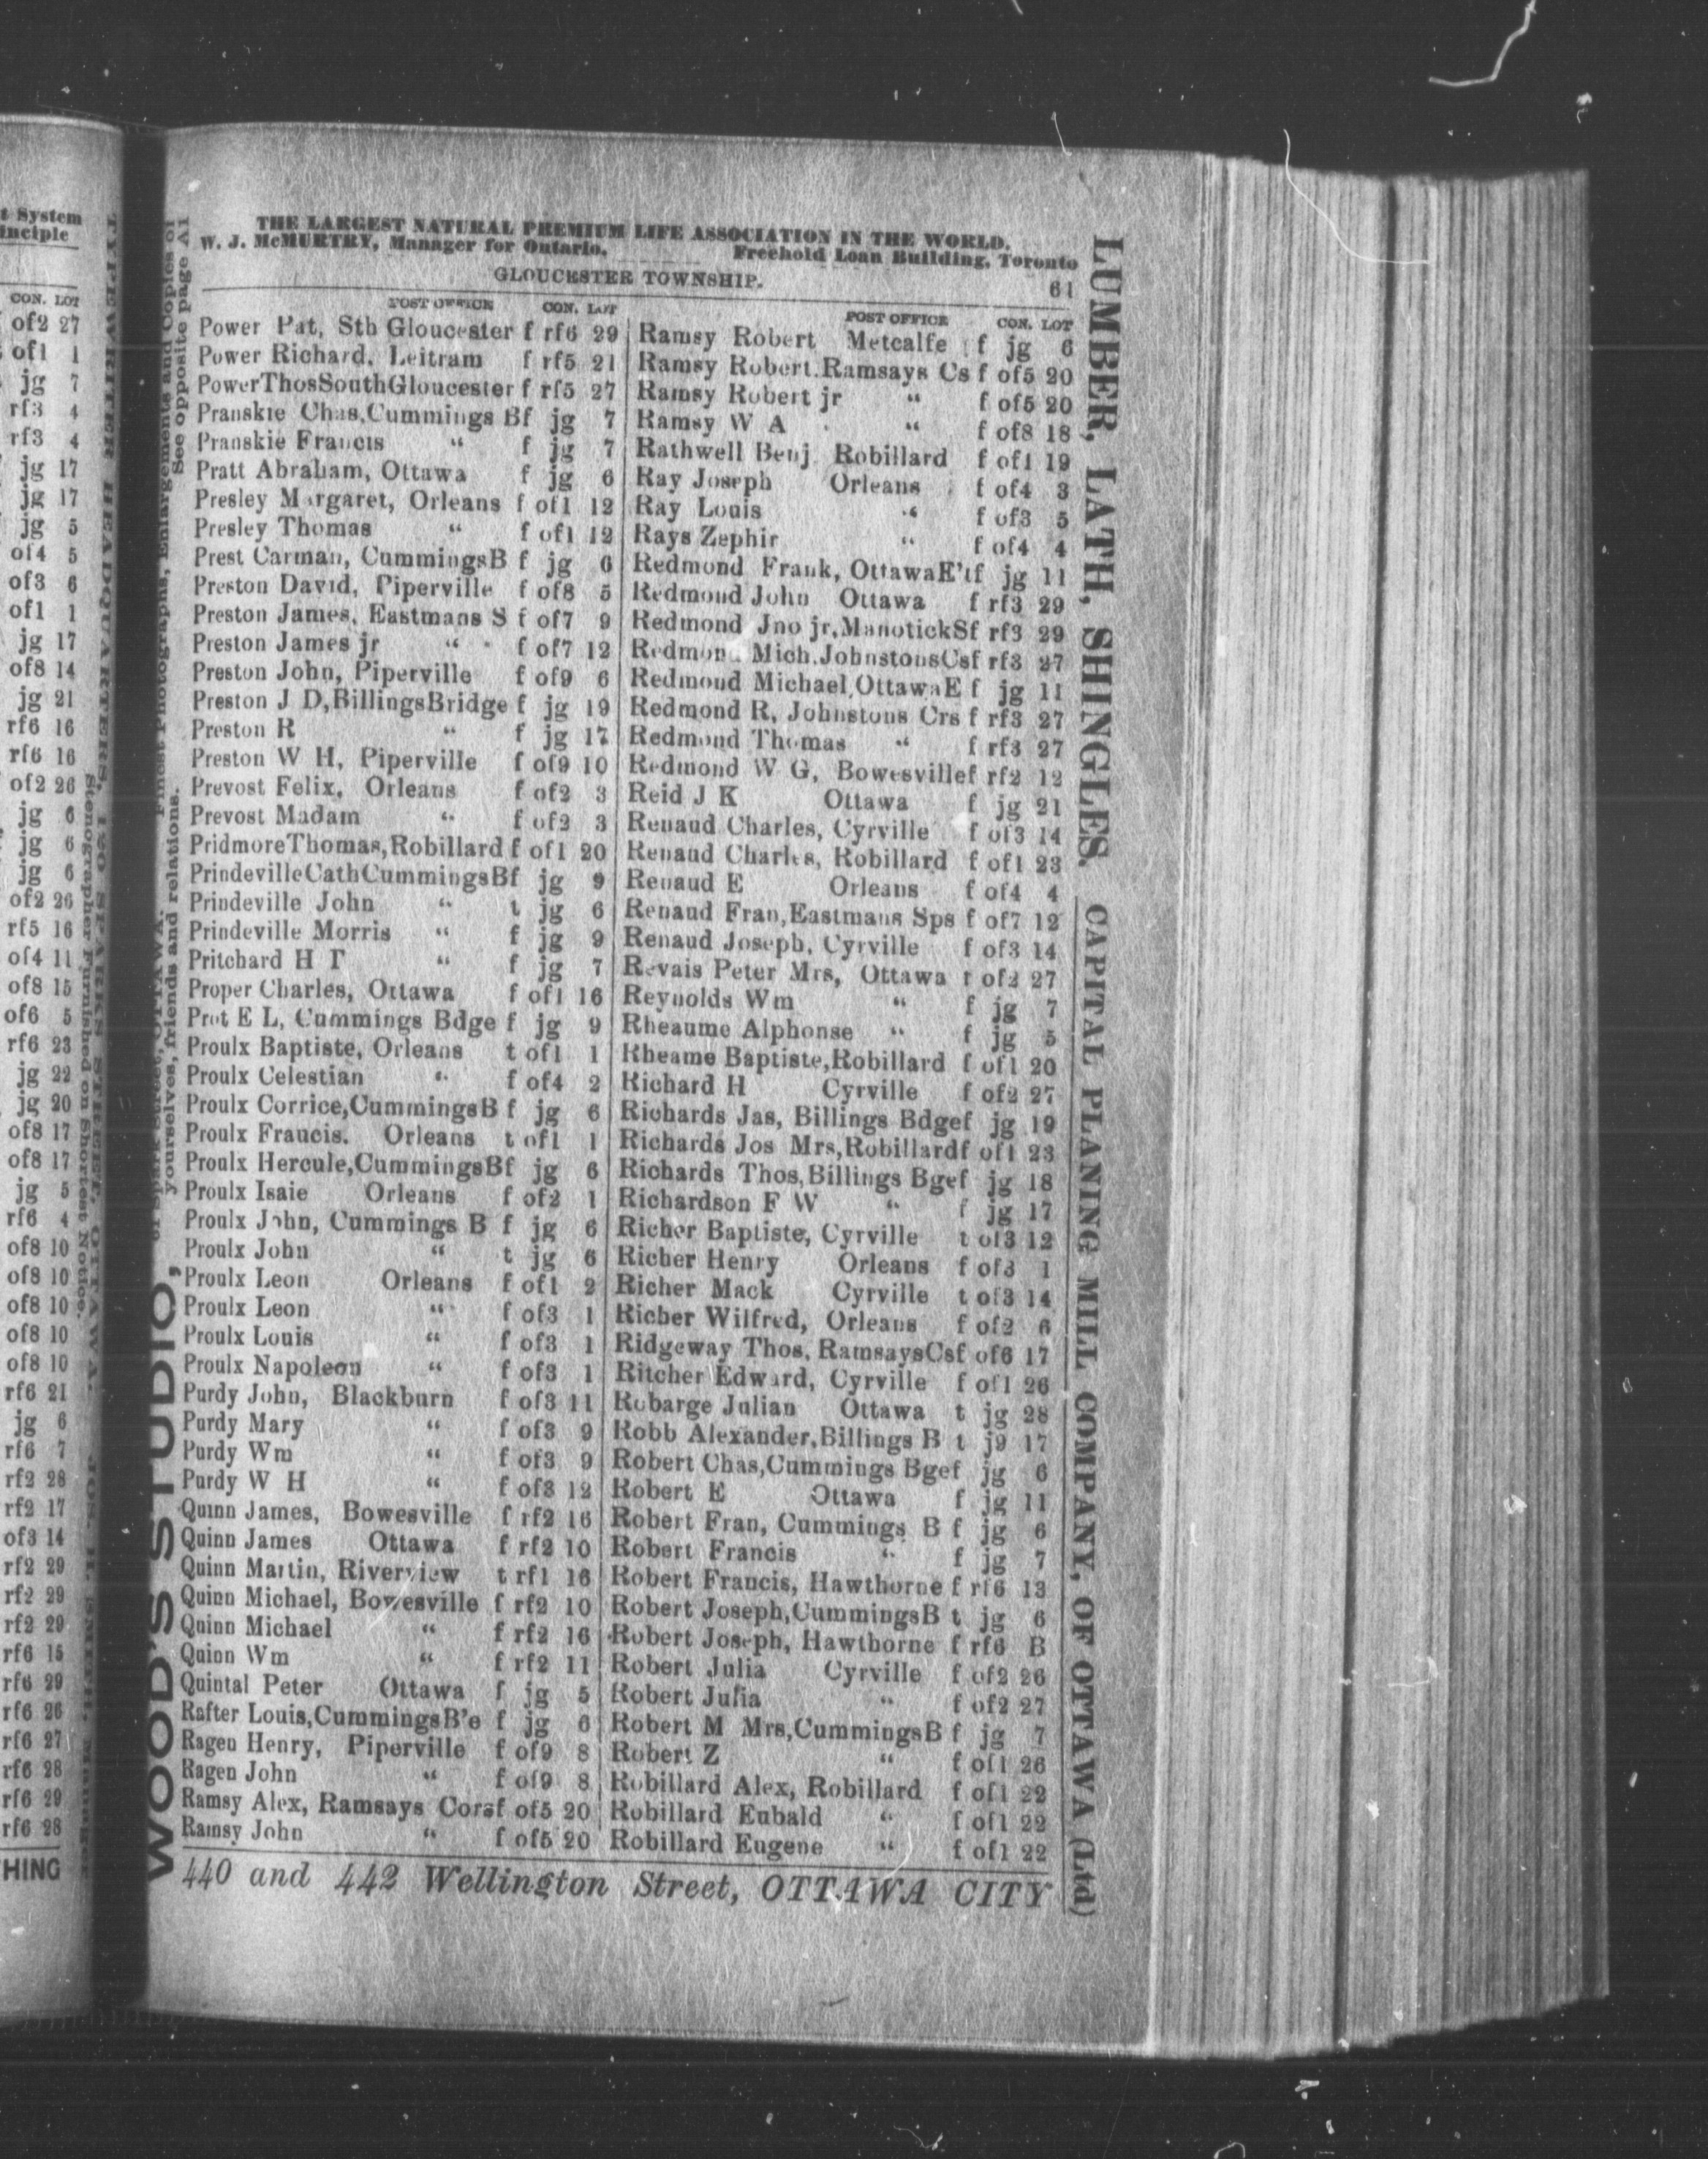 THE LARGEST NATURAL PREMIUM LIFE ASSOCIATION IN THE WORLD.
W. J. McMURTRY, Manager for Ontario. Freehold Loan Building, Toronto
GLOUCESTER TOWNSHIP. 61
POST OFFICE CON. LOT
Power Pat, Sth Gloucester f rf6 29
Power Richard, Leitram f rf5 21
PowerThosSouthGloucester f rf5 27
Pranskie Chas,Cummings Bf jg 7
Pranskie Francis “ f jg 7
Pratt Abraham, Ottawa f jg 6
Presley Margaret, Orleans f of1 12
Presley Thomas “ f of1 12
Prest Carman, CummingsB f jg 6
Preston David, Piperville f of8 5
Preston James, Eastmans S f of7 9
Preston James jr “ f of7 12
Preston John, Piperville f of9 6
Preston J D,BillingsBridge f jg 19
Preston R “ f jg 17
Preston W H, Piperville f of9 10
Prevost Felix, Orleans f of2 3
Prevost Madam “ f of2 3
PridmoreThomas,Robillard f of1 20
PrindevilleCathCummingsBf jg 9
Prindeville John “ t jg 6
Prindeville Morris “ f jg 9
Pritchard H T “ f jg 7
Proper Charles, Ottawa f of1 16
Prot E L, Cummings Bdge f jg 9
Proulx Baptiste, Orleans t of1 1
Proulx Celestian “ f of4 2
Proulx Corrice,CummingsB f jg 6
Proulx Francis. Orleans t of1 1
Proulx Hercule,CummingsBf jg 6
Proulx Isaie Orleans f of2 1
Proulx John, Cummings B f jg 6
Proulx John “ t jg 6
Proulx Leon Orleans f of1 2
Proulx Leon “ f of3 1
Proulx Louis “ f of3 1
Proulx Napoleon “ f of3 1
Purdy John, Blackburn f of3 11
Purdy Mary “ f of3 9
Purdy Wm “ f of3 9
Purdy W H “ f of3 12
Quinn James, Bowesville f rf2 16
Quinn James Ottawa f rf2 10
Quinn Martin, Riverview t rf1 16
Quinn Michael, Bowesville f rf2 10
Quinn Michael “ f rf2 16
Quinn Wm “ f rf2 11
Quintal Peter Ottawa f jg 5
Rafter Louis,CummingsB'e f jg 6
Ragen Henry, Piperville f of9 8
Ragen John “ f of9 8
Ramsy Alex, Ramsays Corsf of5 20
Ramsy John “ f of5 20
POST OFFICE CON. LOT
Ramsy Robert Metcalfe f jg 6
Ramsy Robert.Ramsays Cs f of5 20
Ramsy Robert jr “ f of5 20
Ramsy W A “ f of8 18
Rathwell Benj Robillard f of1 19
Ray Joseph Orleans f of4 3
Ray Louis “ f of3 5
Rays Zephir “ f of4 4
Redmond Frank, OttawaE'tf jg 11
Redmond John Ottawa f rf3 29
Redmond Jno jr,ManotickSf rf3 29
Redmond Mich.JohnstonsCsf rf3 27
Redmond Michael,OttawaE f jg 11
Redmond R, Johnstons Crs f rf3 27
Redmond Thomas “ f rf3 27
Redmond W G, Bowesvillef rf2 12
Reid J K Ottawa f jg 21
Renaud Charles, Cyrville f of3 14
Renaud Charles, Robillard f of1 23
Renaud E Orleans f of4 4
Renaud Fran,Eastmans Sps f of7 12
Renaud Joseph, Cyrville f of3 14
Revais Peter Mrs, Ottawa t of2 27
Reynolds Wm “ f jg 7
Rheaume Alphonse “ f jg 5
Rheame Baptiste,Robillard f of1 20
Richard H Cyrville f of2 27
Richards Jas, Billings Bdgef jg 19
Richards Jos Mrs,Robillardf of1 23
Richards Thos,Billings Bgef jg 18
Richardson F W “ f jg 17
Richer Baptiste, Cyrville t of3 12
Richer Henry Orleans f of3 1
Richer Mack Cyrville t of3 14
Richer Wilfred, Orleans f of2 6
Ridgeway Thos, RamsaysCsf of6 17
Ritcher Edward, Cyrville f of1 26
Robarge Julian Ottawa t jg 28
Robb Alexander,Billings B t j9 17
Robert Chas,Cummings Bgef jg 6
Robert E Ottawa f jg 11
Robert Fran, Cummings B f jg 6
Robert Francis “ f jg 7
Robert Francis, Hawthorne f rf6 13
Robert Joseph,CummingsB t jg 6
Robert Joseph, Hawthorne f rf6 B
Robert Julia Cyrville f of2 26
Robert Julia “ f of2 27
Robert M Mrs,CummingsB f jg 7
Robert Z “ f of1 26
Robillard Alex, Robillard f of1 22
Robillard Eubald “ f of1 22
Robillard Eugene “ f of1 22
440 and 442 Wellington Street, OTTAWA CITY
LUMBER, LATH, SHINGLES. CAPITAL PLANING MILL COMPANY, OF OTTAWA (Ltd)
WOOD'S STUDIO,
Finest Photographs, Enlargements and Copies of
yourselves, friends and relations. See opposite page A1
TYPEWRITER HEADQUARTERS, 120 SPARKS STREET, OTTAWA.
Stenographer Furnished on Shortest Notice.
t System
inciple
CON. LOT
of2 27
of1 1
jg 7
rf3 4
rf3 4
jg 17
jg 17
jg 5
of4 5
of3 6
of1 1
jg 17
of8 14
jg 21
rf6 16
rf6 16
of2 26
jg 6
jg 6
jg 6
of2 26
rf5 16
of4 11
of8 15
of6 5
rf6 23
jg 22
jg 20
of8 17
of8 17
jg 5
rf6 4
of8 10
of8 10
of8 10
of8 10
of8 10
rf6 21
jg 6
rf6 7
rf2 28
rf2 17
of3 14
rf2 29
rf2 29
rf2 29
rf6 15
rf6 29
rf6 26
rf6 27
rf6 28
rf6 29
rf6 28
HING